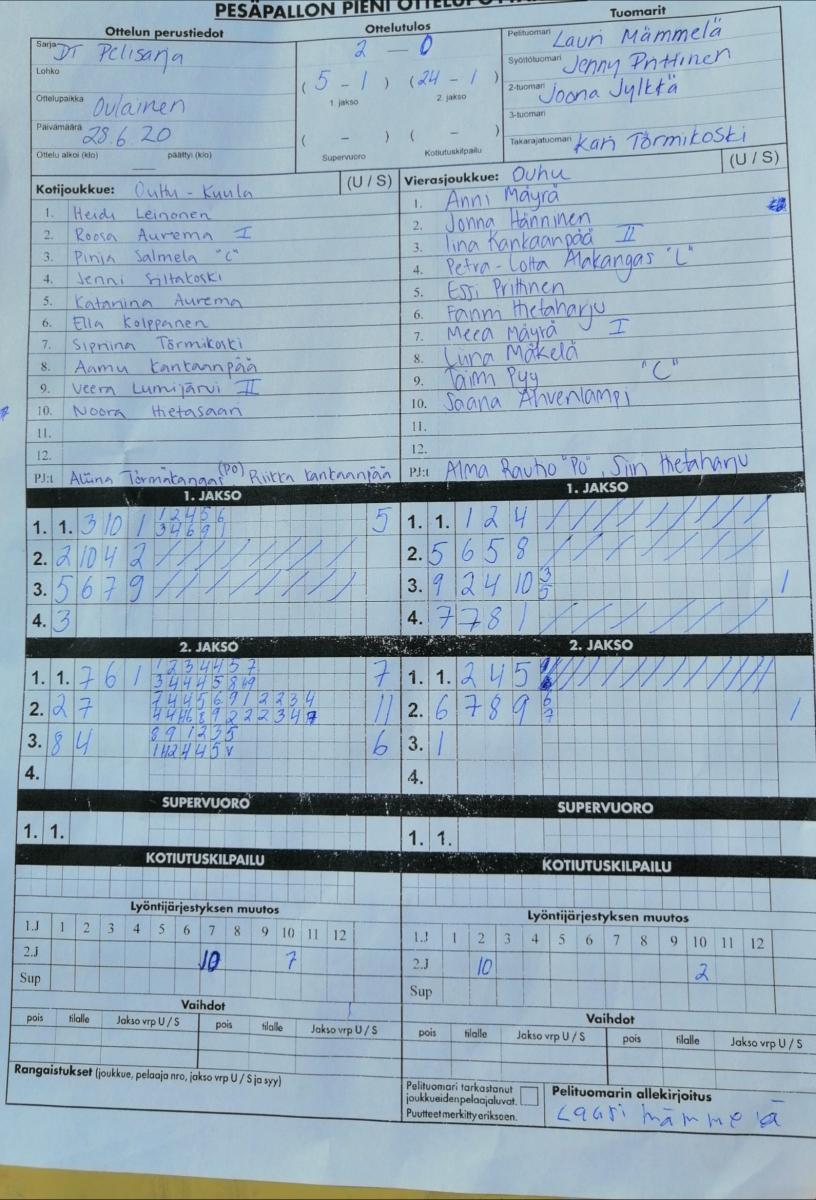 PESÄPALLON PIENI OTTELUPÖYTÄ
Ottelun perustiedot
Sarja DT Pelisarja
Lohko
Ottelupaikka Oulainen
Päivämäärä 28.6.20
Ottelu alkoi (klo) päättyi (klo)
Ottelutulos
2 - 0
( 5 - 1 ) ( 24 - 1 )
1. jakso 2. jakso
( - ) ( - )
Supervuoro Kotiutuskilpailu
Tuomarit
Pelituomari Lauri Mämmelä
Syöttötuomari Jenny Prittinen
2-tuomari Joona Jylkkä
3-tuomari
Takarajatuomari Kari Törmikoski
Kotijoukkue: Ouhu - Kuula (U / S)
1. Heidi Leinonen
2. Roosa Aurema I
3. Pinja Salmela "C"
4. Jenni Siltakoski
5. Katariina Aurema
6. Ella Kolppanen
7. Sipriina Törmikoski
8. Aamu Kantaanpää
9. Veera Lumijärvi II
10. Noora Hietasaari
11.
12.
PJ:t Törmäkangas (PO) Riikka Kankaanpää
Vierasjoukkue: Ouhu (U / S)
1. Anni Mäyrä
2. Jonna Hänninen
3. Iina Kankaanpää II
4. Petra-Lotta Alakangas "L"
5. Essi Prittinen
6. Fanni Hietaharju
7. Meea Mäyrä I
8. Liina Mäkelä
9. Taimi Pyy "C"
10. Saana Ahvenlampi
11.
12.
PJ:t Alma Rautio "PO", Siiri Hietaharju
1. JAKSO
1. 1. 3 10 1 1 2 4 5 6 5
3 4 6 9 1
2. 2 10 4 2
3. 5 6 7 9
4. 3
1. JAKSO
1. 1. 1 2 4
2. 5 6 5 8
3. 9 2 4 10 3 1
5
4. 7 7 8 1
2. JAKSO
1. 1. 7 6 1 1 2 3 4 4 5 7 7
2. 2 7 11
3. 8 4 8 9 1 2 3 5 6
4.
2. JAKSO
1. 1. 2 4 5
2. 6 7 8 9 6 1
7
3. 1
4.
SUPERVUORO
1. 1.
SUPERVUORO
1. 1.
KOTIUTUSKILPAILU
KOTIUTUSKILPAILU
Lyöntijärjestyksen muutos
1.J 1 2 3 4 5 6 7 8 9 10 11 12
2.J 10 7
Sup
Lyöntijärjestyksen muutos
1.J 1 2 3 4 5 6 7 8 9 10 11 12
2.J 10 2
Sup
Vaihdot
pois tilalle Jakso vrp U / S pois tilalle Jakso vrp U / S
Vaihdot
pois tilalle Jakso vrp U / S pois tilalle Jakso vrp U / S
Rangaistukset (joukkue, pelaaja nro, jakso vrp U / S ja syy)
Pelituomari tarkastanut
joukkueiden pelaajaluvat.
Puutteet merkitty erikseen.
Pelituomarin allekirjoitus
Lauri Mämmelä